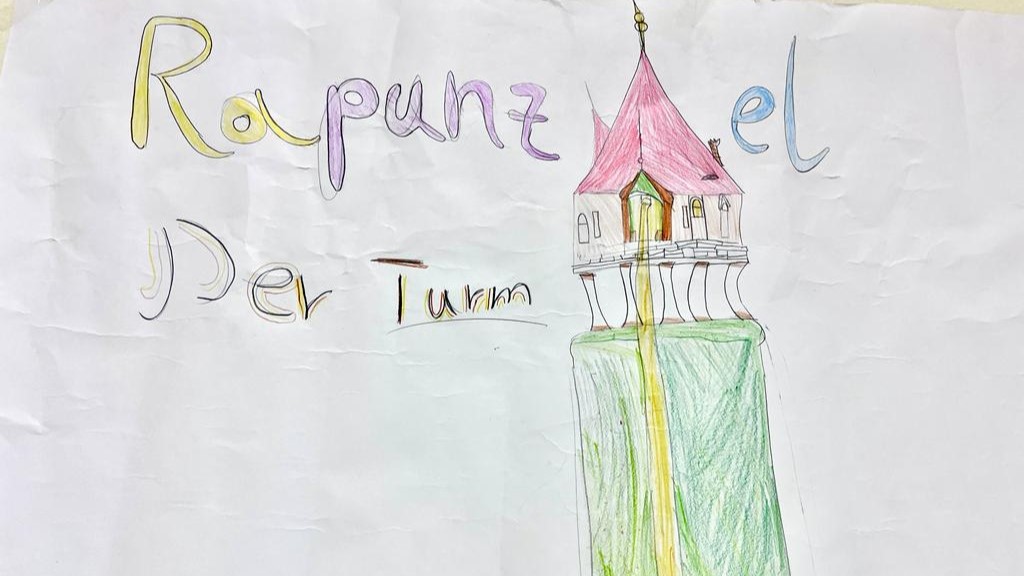 Rapunzel
Der Turm